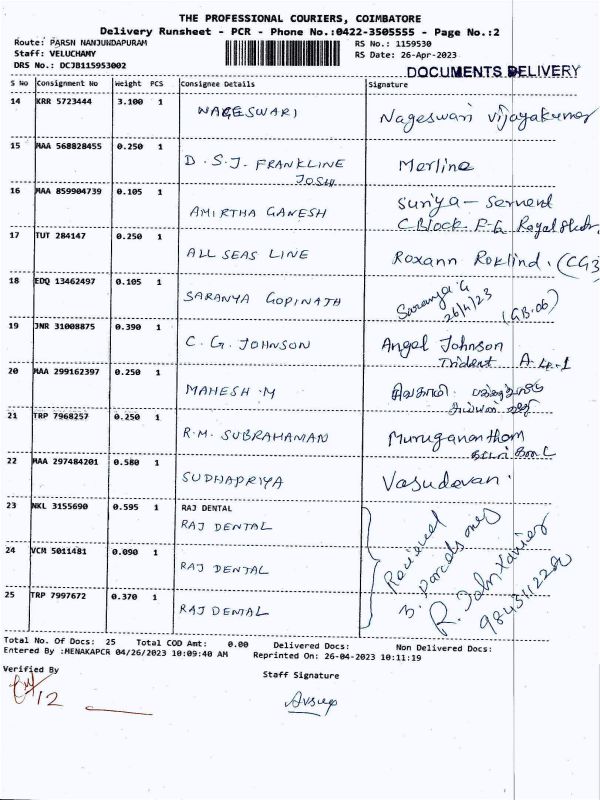 THE PROFESSIONAL COURIERS, COIMBATORE
Delivery Runsheet - PCR - Phone No.:0422-3505555 - Page No.:2
Route: PARSN NANJUNDAPURAM
Staff: VELUCHAMY
DRS No.: DCJB115953002
RS No.: 1159530
RS Date: 26-Apr-2023
DOCUMENTS DELIVERY
S No Consignment No Weight PCS Consignee Details Signature
14 KRR 5723444 3.100 1 NAGESWARI Nageswari Vijayakumar
15 MAA 568828455 0.250 1 D.S.J. FRANKLINE Merline
JOSHI
16 MAA 859904739 0.105 1 AMIRTHA GANESH Suriya - Servent
C Block. F-6 Royal
17 TUT 284147 0.250 1 ALL SEAS LINE Roxann Roklind. (CG3
18 EDQ 13462497 0.105 1 SARANYA GOPINATH Saranya G
26/4/23 (GB.06)
19 JNR 31008875 0.390 1 C.G. JOHNSON Angel Johnson
Trident A.4.1
20 MAA 299162397 0.250 1 MAHESH.M
21 TRP 7968257 0.250 1 R.M. SUBRAHAMAN Murugananthom
22 MAA 297484201 0.580 1 SUDHAPRIYA Vasudevan.
23 NKL 3155690 0.595 1 RAJ DENTAL
RAJ DENTAL
24 VCM 5011481 0.090 1 RAJ DENTAL
25 TRP 7997672 0.370 1 RAJ DENTAL
Received
3. parcels only
R. John Xavier
9843112280
Total No. Of Docs: 25 Total COD Amt: 0.00 Delivered Docs: Non Delivered Docs:
Entered By :MENAKAPCR 04/26/2023 10:09:40 AM Reprinted On: 26-04-2023 10:11:19
Verified By
Staff Signature
12